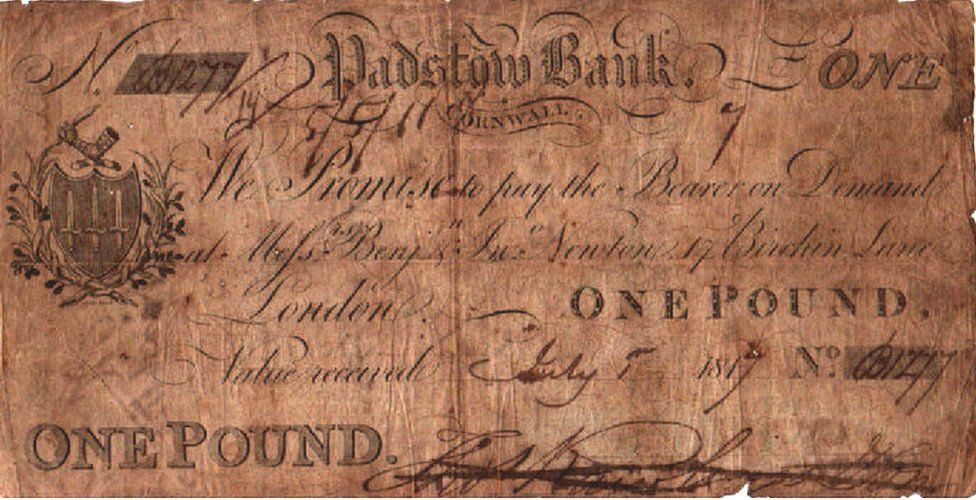 No. B1277 Padstow Bank. ONE
CORNWALL.
We Promise to pay the Bearer on Demand
at Messrs. Benjn. & Jno. Newton 17 Birchin Lane
London. ONE POUND.
Value received July 1817 No. B1277
ONE POUND.